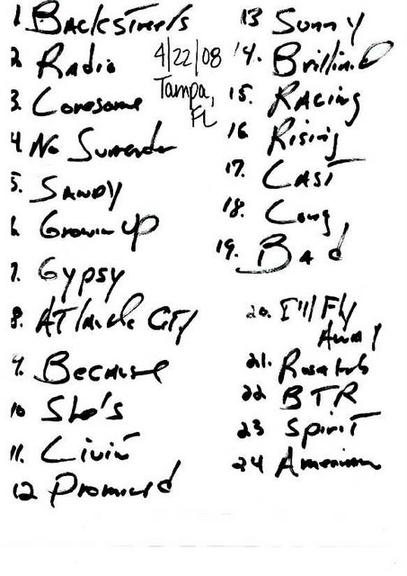 1 Backstreets
2 Radio
3. Lonesome
4 No Surrender
5. Sandy
6. Growin up
7. Gypsy
8. Atlantic City
9. Because
10 She's
11. Livin
12 Promised
4/22/08
Tampa,
FL
13 Sunny
14. Brilliant D
15. Racing
16 Rising
17. Last
18. Long
19. Bad
20. I'll Fly
Away
21. Rosalita
22 BTR
23 Spirit
24 American